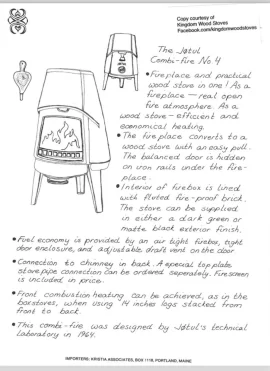 Copy courtesy of
Kingdom Wood Stoves
Facebook.com/kingdomwoodstoves
The Jøtul
Combi-fire No. 4
• Fireplace and practical
wood stove in one! As a
fireplace — real open
fire atmosphere. As a
wood stove — efficient and
economical heating.
• The fireplace converts to a
wood stove with an easy pull.
The balanced door is hidden
on iron rails under the fire-
place.
• Interior of firebox is lined
with fluted fire-proof brick.
The stove can be supplied
in either a dark green or
matte black exterior finish.
• Fuel economy is provided by an air tight firebox, tight
door enclosure, and adjustable draft vent on the door.
• Connection to chimney in back. A special top plate
stove pipe connection can be ordered seperately. Firescreen
is included in price.
• Front combustion heating can be achieved, as in the
boxstoves, when using 14 inches logs stacked from
front to back.
• This combi-fire was designed by Jøtul's technical
Laboratory in 1964.
IMPORTERS: KRISTIA ASSOCIATES, BOX 1118, PORTLAND, MAINE